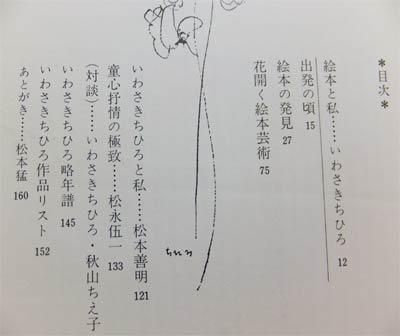 ＊目次＊
絵本と私……いわさきちひろ 12
出発の頃 15
絵本の発見 27
花開く絵本芸術 75
ちひろ
いわさきちひろと私……松本善明 121
童心抒情の極致……松永伍一 133
(対談)……いわさきちひろ・秋山ちえ子
いわさきちひろ略年譜 145
いわさきちひろ作品リスト 152
あとがき……松本猛 160